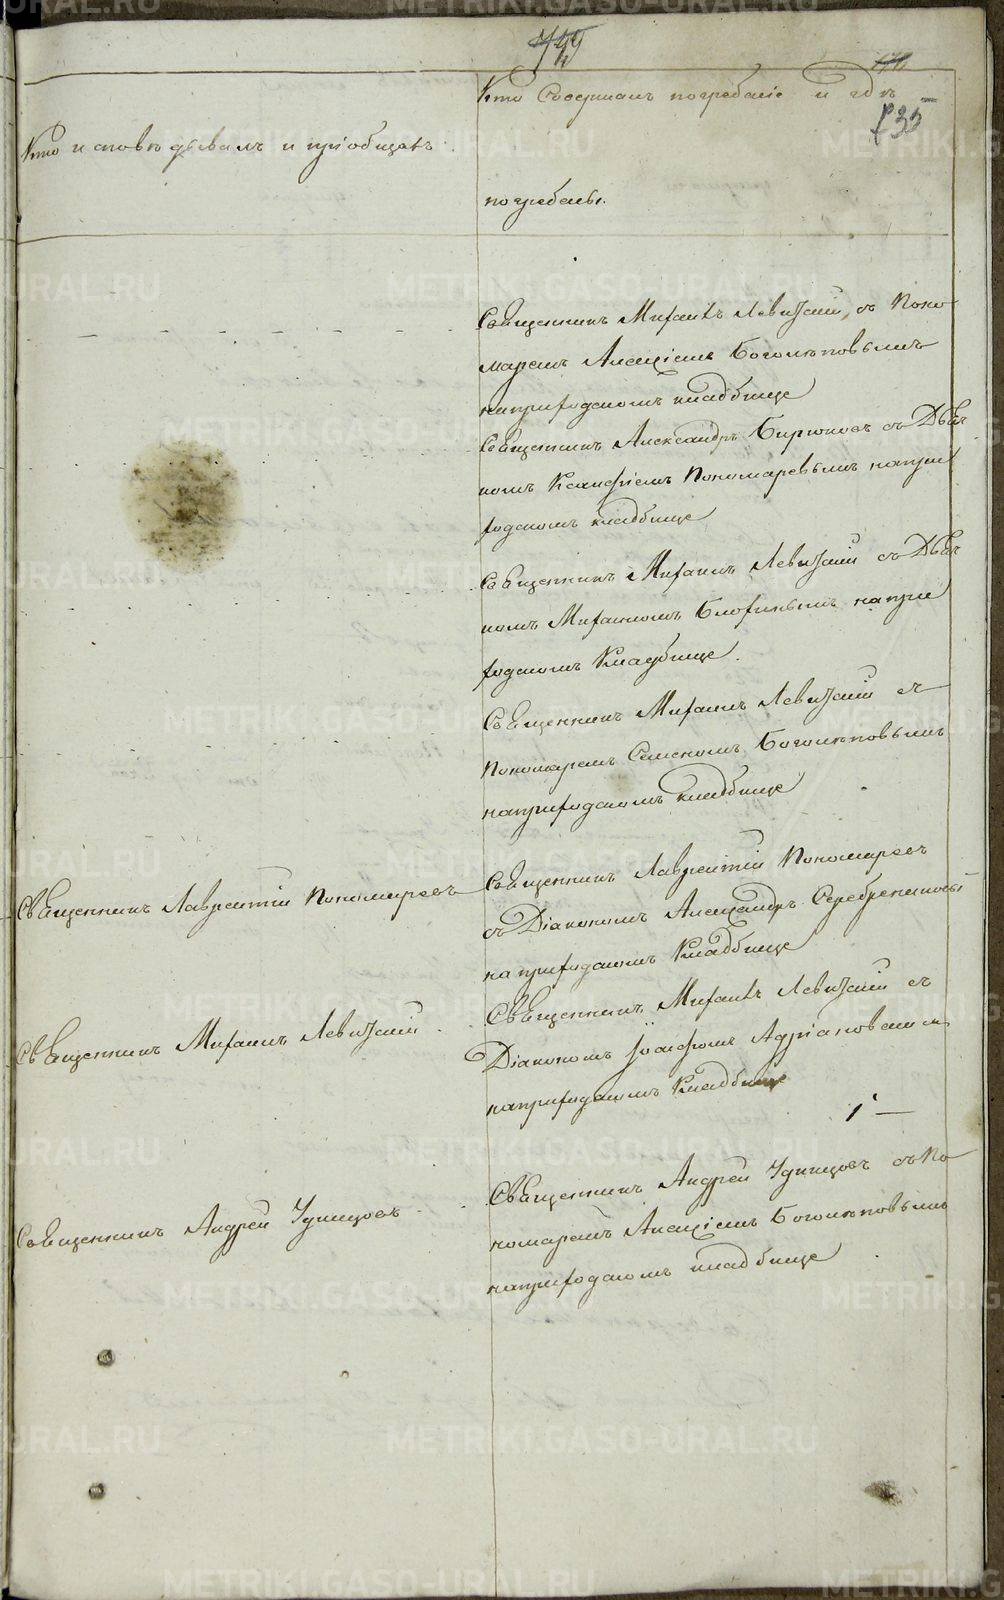 749
835
Кто исповѣдывалъ и пріобщалъ.
Кто Совершалъ погребеніе и гдѣ
погребены.
Священникъ Михаилъ Левитскій, съ Поно
маремъ Алексіемъ Боголѣповымъ
наприходскомъ кладбище
Священникъ Александръ Бирюковъ съ Дьяч
комъ Ксанфіемъ Пономаревымъ напри
ходскомъ кладбище
Священникъ Михаилъ Левитскій съ Дьяч
комъ Михаиломъ Блохинымъ напри
ходскомъ Кладбище.
Священникъ Михаилъ Левитскій съ
Пономаремъ Семеномъ Боголѣповымъ
наприходскомъ кладбище
Священникъ Лаврентій Пономаревъ
Священникъ Лаврентій Пономаревъ
съ Діакономъ Александръ Серебрениковы
на приходскомъ Кладбище
Священникъ Михаилъ Левитскій.
Священникъ Михаилъ Левитскій съ
Діакономъ Іоасафомъ Адріановскимъ
наприходскомъ Кладбище
Священникъ Андрей Удинцовъ.
Священникъ Андрей Удинцовъ съ По
номаремъ Алексіемъ Боголѣповымъ
наприходскомъ кладбище
METRIKI.GASO-URAL.RU